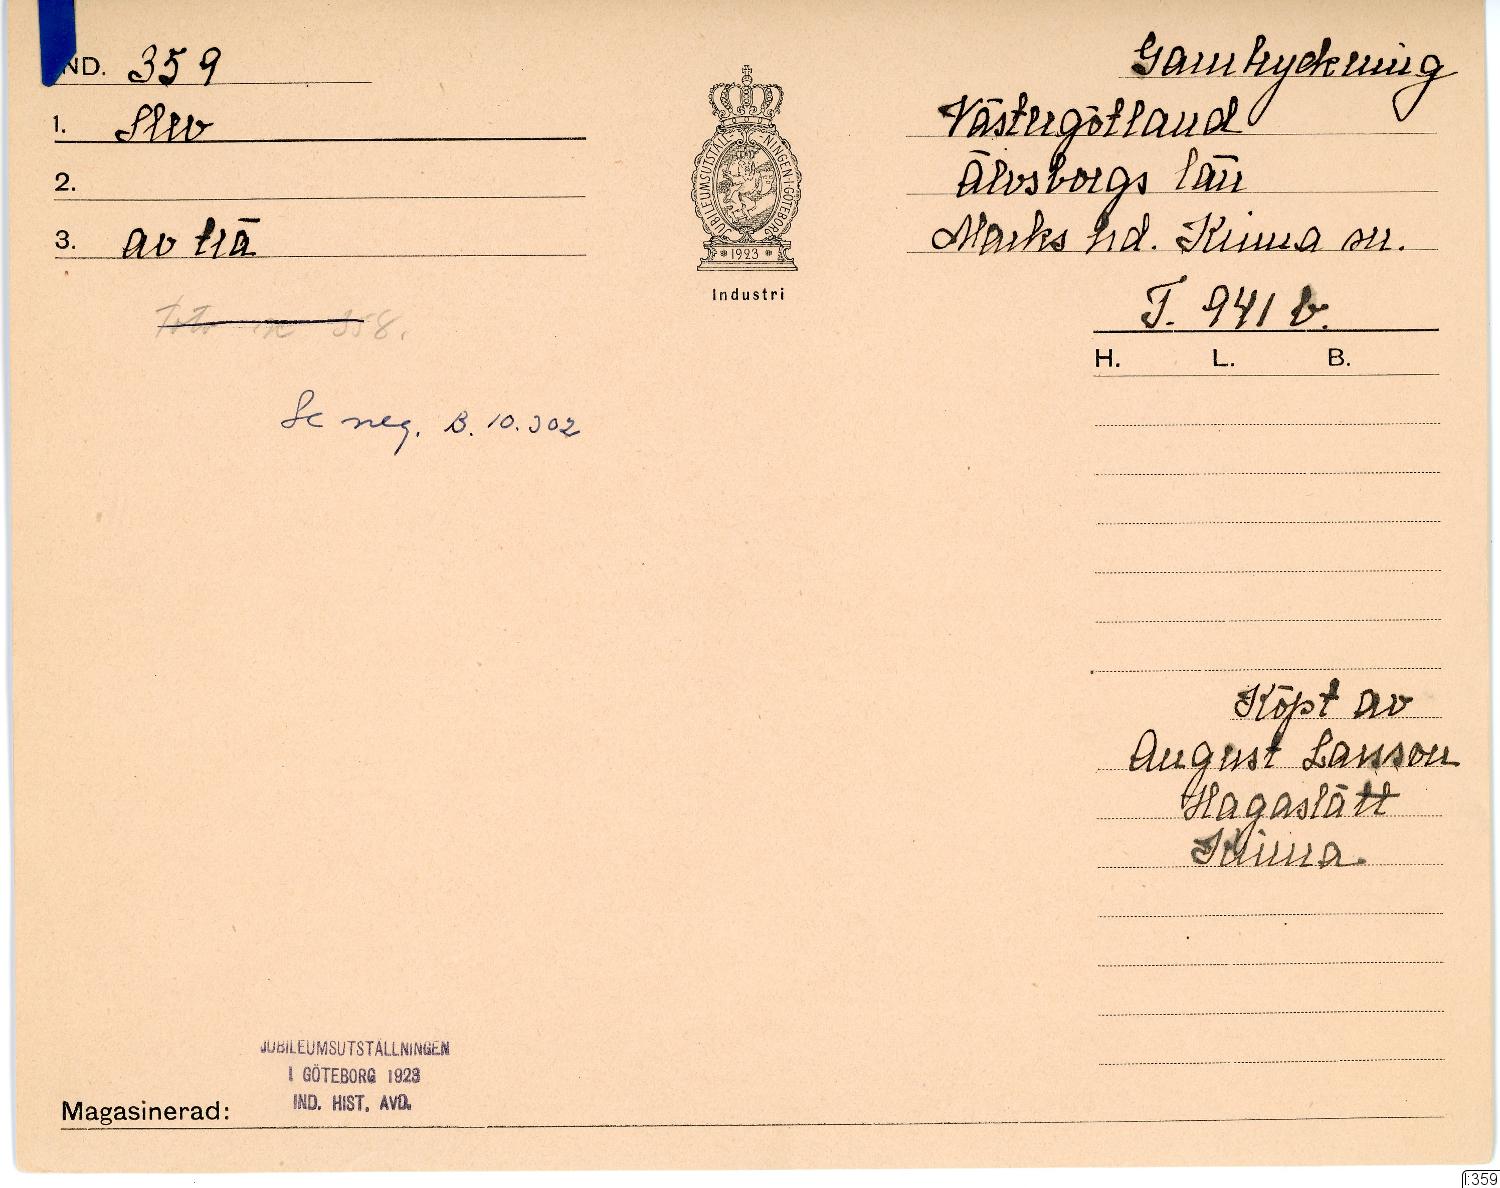 IND. 359
1. Slev
2.
3. av trä
Foto se 358.
Se neg. B. 10.302
JUBILEUMSUTSTÄLLNINGEN I GÖTEBORG
* 1923 *
Industri
Garnhyckning
Västergötland
Älvsborgs län
Marks hd. Kinna sn.
T. 941 b.
H. L. B.
Köpt av
August Larsson
Hagaslätt
Kinna.
JUBILEUMSUTSTÄLLNINGEN
I GÖTEBORG 1923
IND. HIST. AVD.
Magasinerad:
I:359